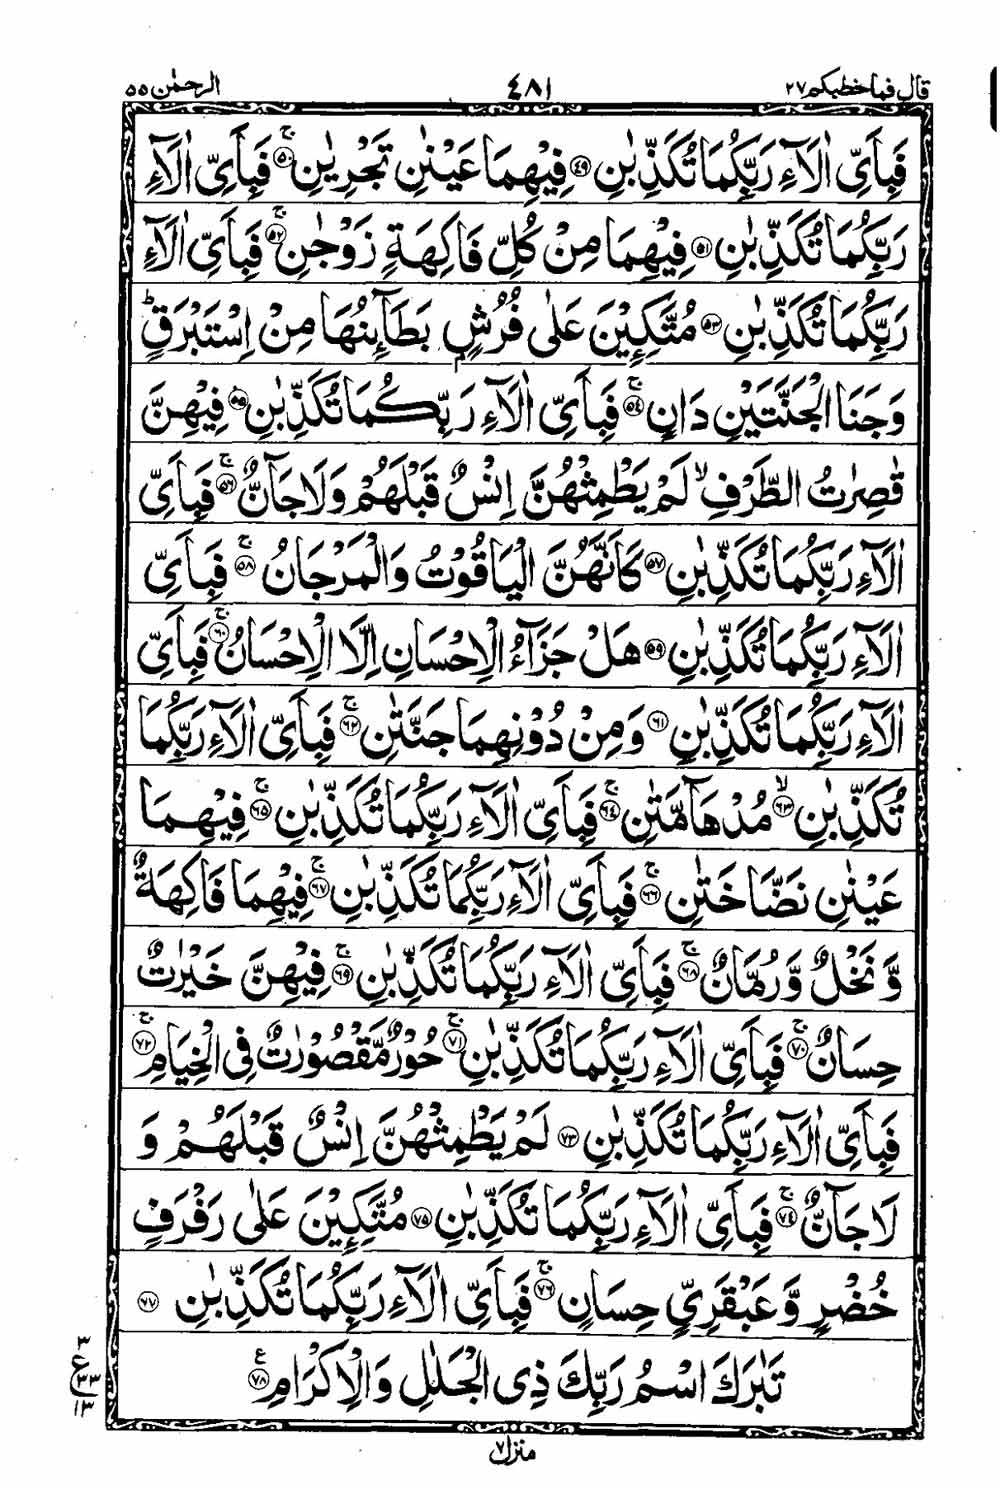 قال فما خطبكم ٢٧
٤٨١
الرحمٰن ٥٥
فَبِاَیِّ اٰلَآءِ رَبِّكُمَا تُكَذِّبٰنِ ﴿٤٩﴾ فِیْهِمَا عَیْنٰنِ تَجْرِیٰنِ ۚ﴿٥٠﴾ فَبِاَیِّ اٰلَآءِ
رَبِّكُمَا تُكَذِّبٰنِ ﴿٥١﴾ فِیْهِمَا مِنْ كُلِّ فَاكِهَةٍ زَوْجٰنِ ۚ﴿٥٢﴾ فَبِاَیِّ اٰلَآءِ
رَبِّكُمَا تُكَذِّبٰنِ ﴿٥٣﴾ مُتَّكِـِٕیْنَ عَلٰی فُرُشٍۭ بَطَآىِٕنُهَا مِنْ اِسْتَبْرَقٍ ؕ
وَجَنَا الْجَنَّتَیْنِ دَانٍ ۚ﴿٥٤﴾ فَبِاَیِّ اٰلَآءِ رَبِّكُمَا تُكَذِّبٰنِ ﴿٥٥﴾ فِیْهِنَّ
قٰصِرٰتُ الطَّرْفِ ۙ لَمْ یَطْمِثْهُنَّ اِنْسٌ قَبْلَهُمْ وَلَا جَآنٌّ ۚ﴿٥٦﴾ فَبِاَیِّ
اٰلَآءِ رَبِّكُمَا تُكَذِّبٰنِ ﴿٥٧﴾ كَاَنَّهُنَّ الْیَاقُوْتُ وَالْمَرْجَانُ ۚ﴿٥٨﴾ فَبِاَیِّ
اٰلَآءِ رَبِّكُمَا تُكَذِّبٰنِ ﴿٥٩﴾ هَلْ جَزَآءُ الْاِحْسَانِ اِلَّا الْاِحْسَانُ ۚ﴿٦٠﴾ فَبِاَیِّ
اٰلَآءِ رَبِّكُمَا تُكَذِّبٰنِ ﴿٦١﴾ وَمِنْ دُوْنِهِمَا جَنَّتٰنِ ۚ﴿٦٢﴾ فَبِاَیِّ اٰلَآءِ رَبِّكُمَا
تُكَذِّبٰنِ ۙ﴿٦٣﴾ مُدْهَآمَّتٰنِ ۚ﴿٦٤﴾ فَبِاَیِّ اٰلَآءِ رَبِّكُمَا تُكَذِّبٰنِ ۚ﴿٦٥﴾ فِیْهِمَا
عَیْنٰنِ نَضَّاخَتٰنِ ۚ﴿٦٦﴾ فَبِاَیِّ اٰلَآءِ رَبِّكُمَا تُكَذِّبٰنِ ۚ﴿٦٧﴾ فِیْهِمَا فَاكِهَةٌ
وَّنَخْلٌ وَّرُمَّانٌ ۚ﴿٦٨﴾ فَبِاَیِّ اٰلَآءِ رَبِّكُمَا تُكَذِّبٰنِ ۚ﴿٦٩﴾ فِیْهِنَّ خَیْرٰتٌ
حِسَانٌ ۚ﴿٧٠﴾ فَبِاَیِّ اٰلَآءِ رَبِّكُمَا تُكَذِّبٰنِ ۚ﴿٧١﴾ حُوْرٌ مَّقْصُوْرٰتٌ فِی الْخِیَامِ ۚ﴿٧٢﴾
فَبِاَیِّ اٰلَآءِ رَبِّكُمَا تُكَذِّبٰنِ ﴿٧٣﴾ لَمْ یَطْمِثْهُنَّ اِنْسٌ قَبْلَهُمْ وَ
لَا جَآنٌّ ۚ﴿٧٤﴾ فَبِاَیِّ اٰلَآءِ رَبِّكُمَا تُكَذِّبٰنِ ﴿٧٥﴾ مُتَّكِـِٕیْنَ عَلٰی رَفْرَفٍ
خُضْرٍ وَّعَبْقَرِیٍّ حِسَانٍ ۚ﴿٧٦﴾ فَبِاَیِّ اٰلَآءِ رَبِّكُمَا تُكَذِّبٰنِ ﴿٧٧﴾
تَبٰرَكَ اسْمُ رَبِّكَ ذِی الْجَلٰلِ وَالْاِكْرَامِ ﴿٧٨﴾ ع
٣
ع ٣٣
١٣
منزل ٧